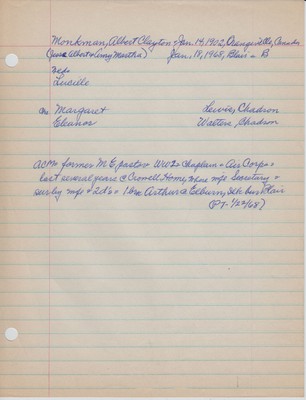 Monkman, Albert Clayton Jan. 14, 1902, Orangeville, Canada
(juss Albert & Amy Martha) Jan. 18, 1968, Blair - B
wife
Lucile
ch. Margaret Lewis, Chadron
Eleanor Walters, Chadron
ACM - former M E pastor - WW 2 - Chaplain - Air Corps -
last several years @ Crowell Home, where wife Secretary -
surv by wife + 2ds - 1 bro Arthur @ Elburn, Ill - bur Blair
(PT - 1/22/68)